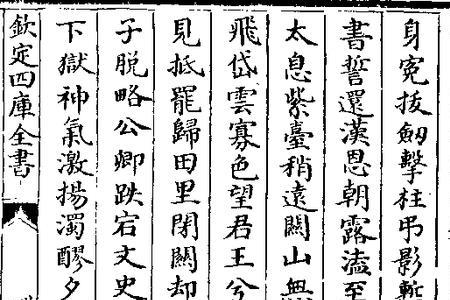 身寃拔劔擊柱弔影慙
書誓還漢恩朝露溘至
太息紫臺稍遠闗山無
飛岱雲寡色望君王兮
見抵罷歸田里閉闗却
子脫略公卿跌宕文史
下獄神氣激揚濁醪夕
欽定四庫全書